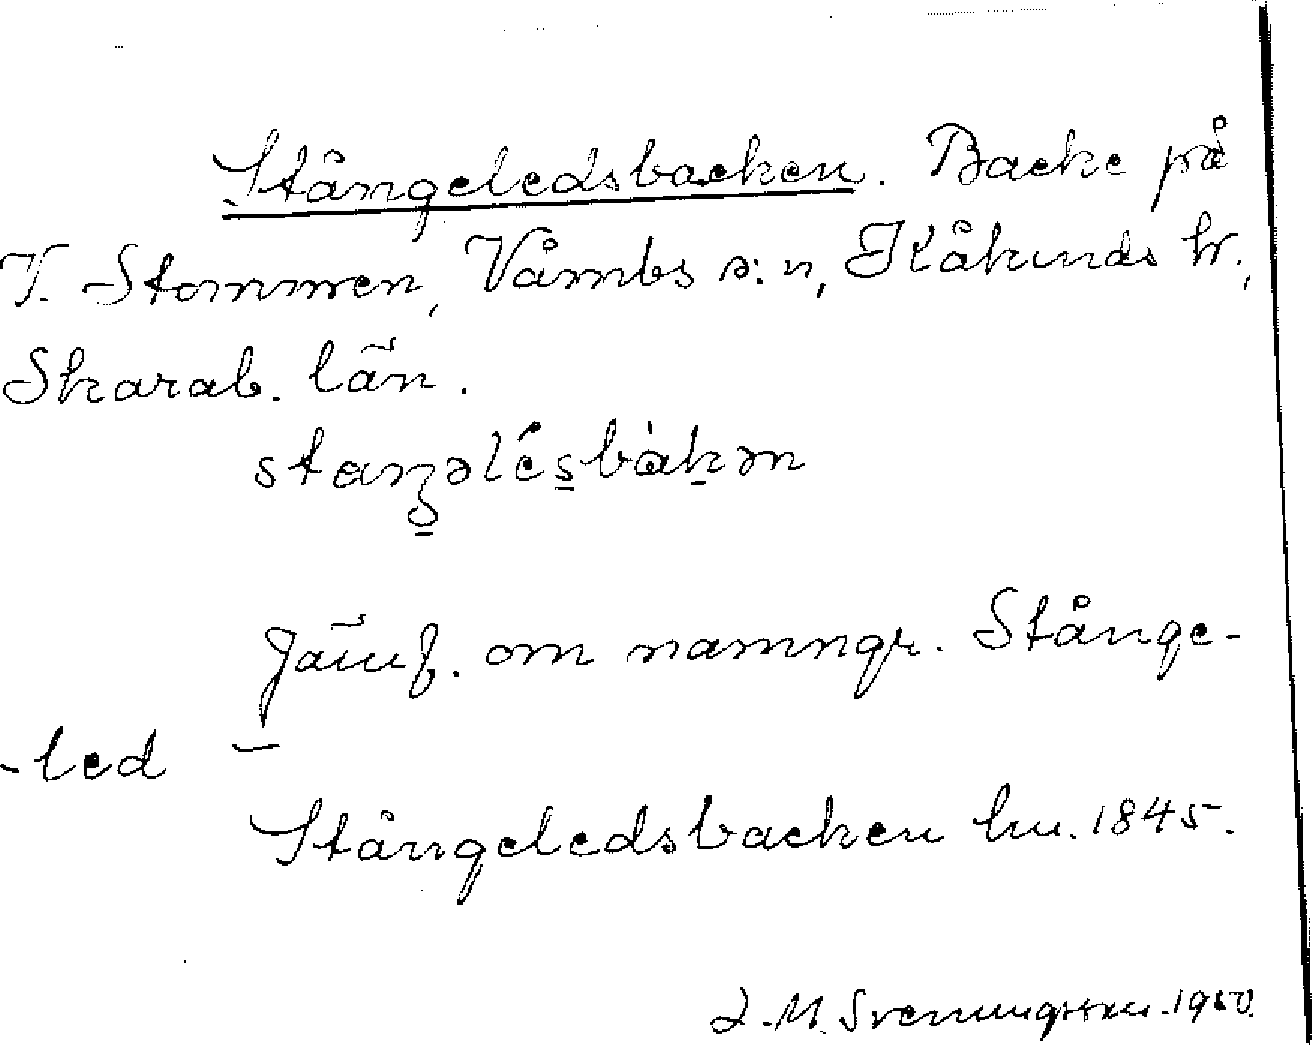 Stångeledsbacken. Backe på
V. Stommen, Våmbs s:n, Kåkinds hr.,
Skarab. län.
Jämf. om namngr. Stånge-
-led –
Stångeledsbacken lm. 1845.
J. M. Svenungsson. 1950.